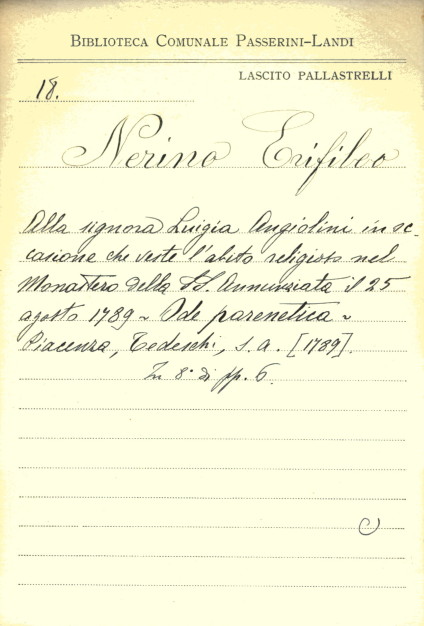 BIBLIOTECA COMUNALE PASSERINI-LANDI
LASCITO PALLASTRELLI
18.
Nerino Erifileo
Alla signora Luigia Angiolini in oc-
casione che veste l'abito religioso nel
Monastero della SS. Annunziata il 25
agosto 1789 ~ Ode parenetica ~
Piacenza, Tedeschi, s. a. [1789].
In 8° di pp. 6.